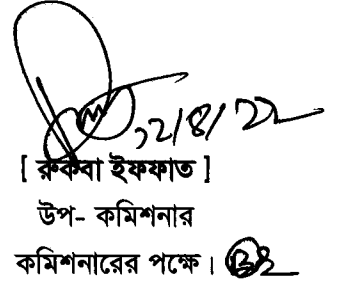 ১২/৪/২২
[ রুকবা ইফফাত ]
উপ- কমিশনার
কমিশনারের পক্ষে।